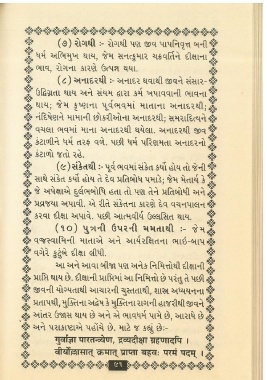 (૭) રોગથી :- રોગથી પણ જીવ પાપનિવૃત્ત બની
ધર્મ અભિમુખ થાય, જેમ સનત્કુમાર ચક્રવર્તિને દીક્ષાના
ભાવ, રોગના કારણે ઉત્પન્ન થયા.
(૮) અનાદરથી :- અનાદર થવાથી જીવને સંસાર-
ઉદ્વિગ્નતા થાય અને સંયમ દ્વારા કર્મ ખપાવવાની ભાવના
થાય; જેમ કૃષ્ણના પૂર્વભવમાં માતાના અનાદરથી;
નંદિષેણને મામાની છોકરીઓના અનાદરથી; સમરાદિત્યને
વચલા ભવમાં માના અનાદરથી થયેલા. અનાદરથી જીવ
કંટાળીને ધર્મ તરફ વળે. પછી ધર્મ પરિણમતા અનાદરનો
કંટાળો જતો રહે.
(૯) સંકેતથી :- પૂર્વ ભવમાં સંકેત કર્યો હોય તો જેની
સાથે સંકેત કર્યો હોય તે દેવ પ્રતિબોધ પમાડે; જેમ મેતાર્ય કે
જે અપેક્ષાએ દુર્લભબોધિ હતા તો પણ તેને પ્રતિબોધી અને
પ્રવ્રજ્યા અપાવી. એ રીતે સંકેતના કારણે દેવ વચનપાલન
કરવા દીક્ષા અપાવે. પછી આત્મવીર્ય ઉલ્લસિત થાય.
(૧૦) પુત્રની ઉપરની મમતાથી :- જેમ
વજ્રસ્વામિની માતાએ અને આર્યરક્ષિતના ભાઇ-બાપ
વગેરે કુટુંબે દીક્ષા લીધી.
આ અને આવા બીજા પણ અનેક નિમિત્તોથી દીક્ષાની
પ્રાપ્તિ થાય છે. દીક્ષાની પ્રાપ્તિમાં આ નિમિત્તો છે પરંતુ તે પછી
જીવની યોગ્યતાથી આચારની ચુસ્તતાથી, શાસ્ત્ર અધ્યયનના
પ્રતાપથી, મુક્તિના અદ્વેષ કે મુક્તિના રાગની હાજરીથી જીવને
આંતર ઉજાસ થાય છે અને એ ભાવધર્મ પામે છે, આરાધે છે
અને પરાકાષ્ટાએ પહોંચે છે. માટે જ કહ્યું છે:-
गुर्वाज्ञा पारतन्त्र्येण, द्रव्यदीक्षा ग्रहणादपि ।
वीर्योल्लासात् क्रमात् प्राप्ता बहवः परमं पदम् ।